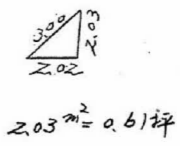 3.00
2.03
2.02
2.03 m² = 0.61坪